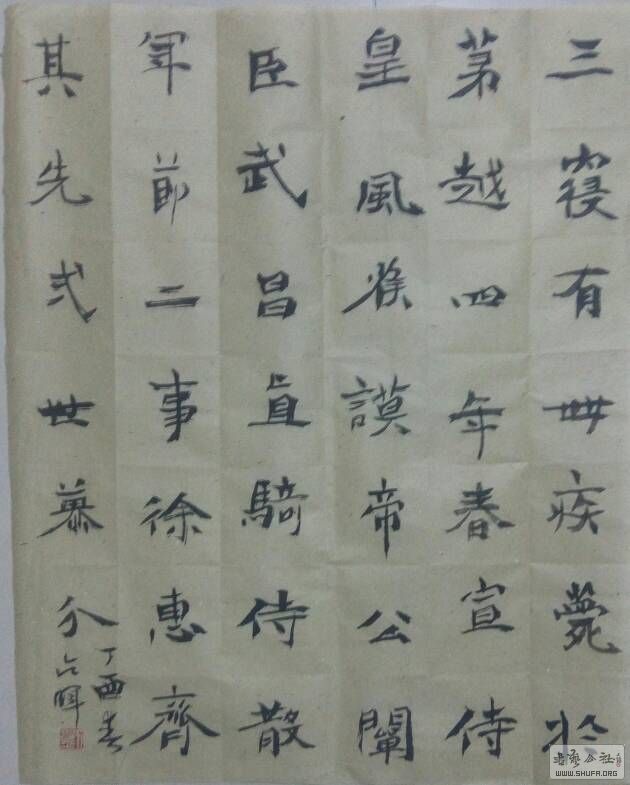 三寝有世疾薨於
第越四年春宣侍
皇風侯謨帝公闡
臣武昌直騎侍散
軍節二事徐惠齊
其先式世慕分
丁酉春
占暉
WWW.SHUFA.ORG